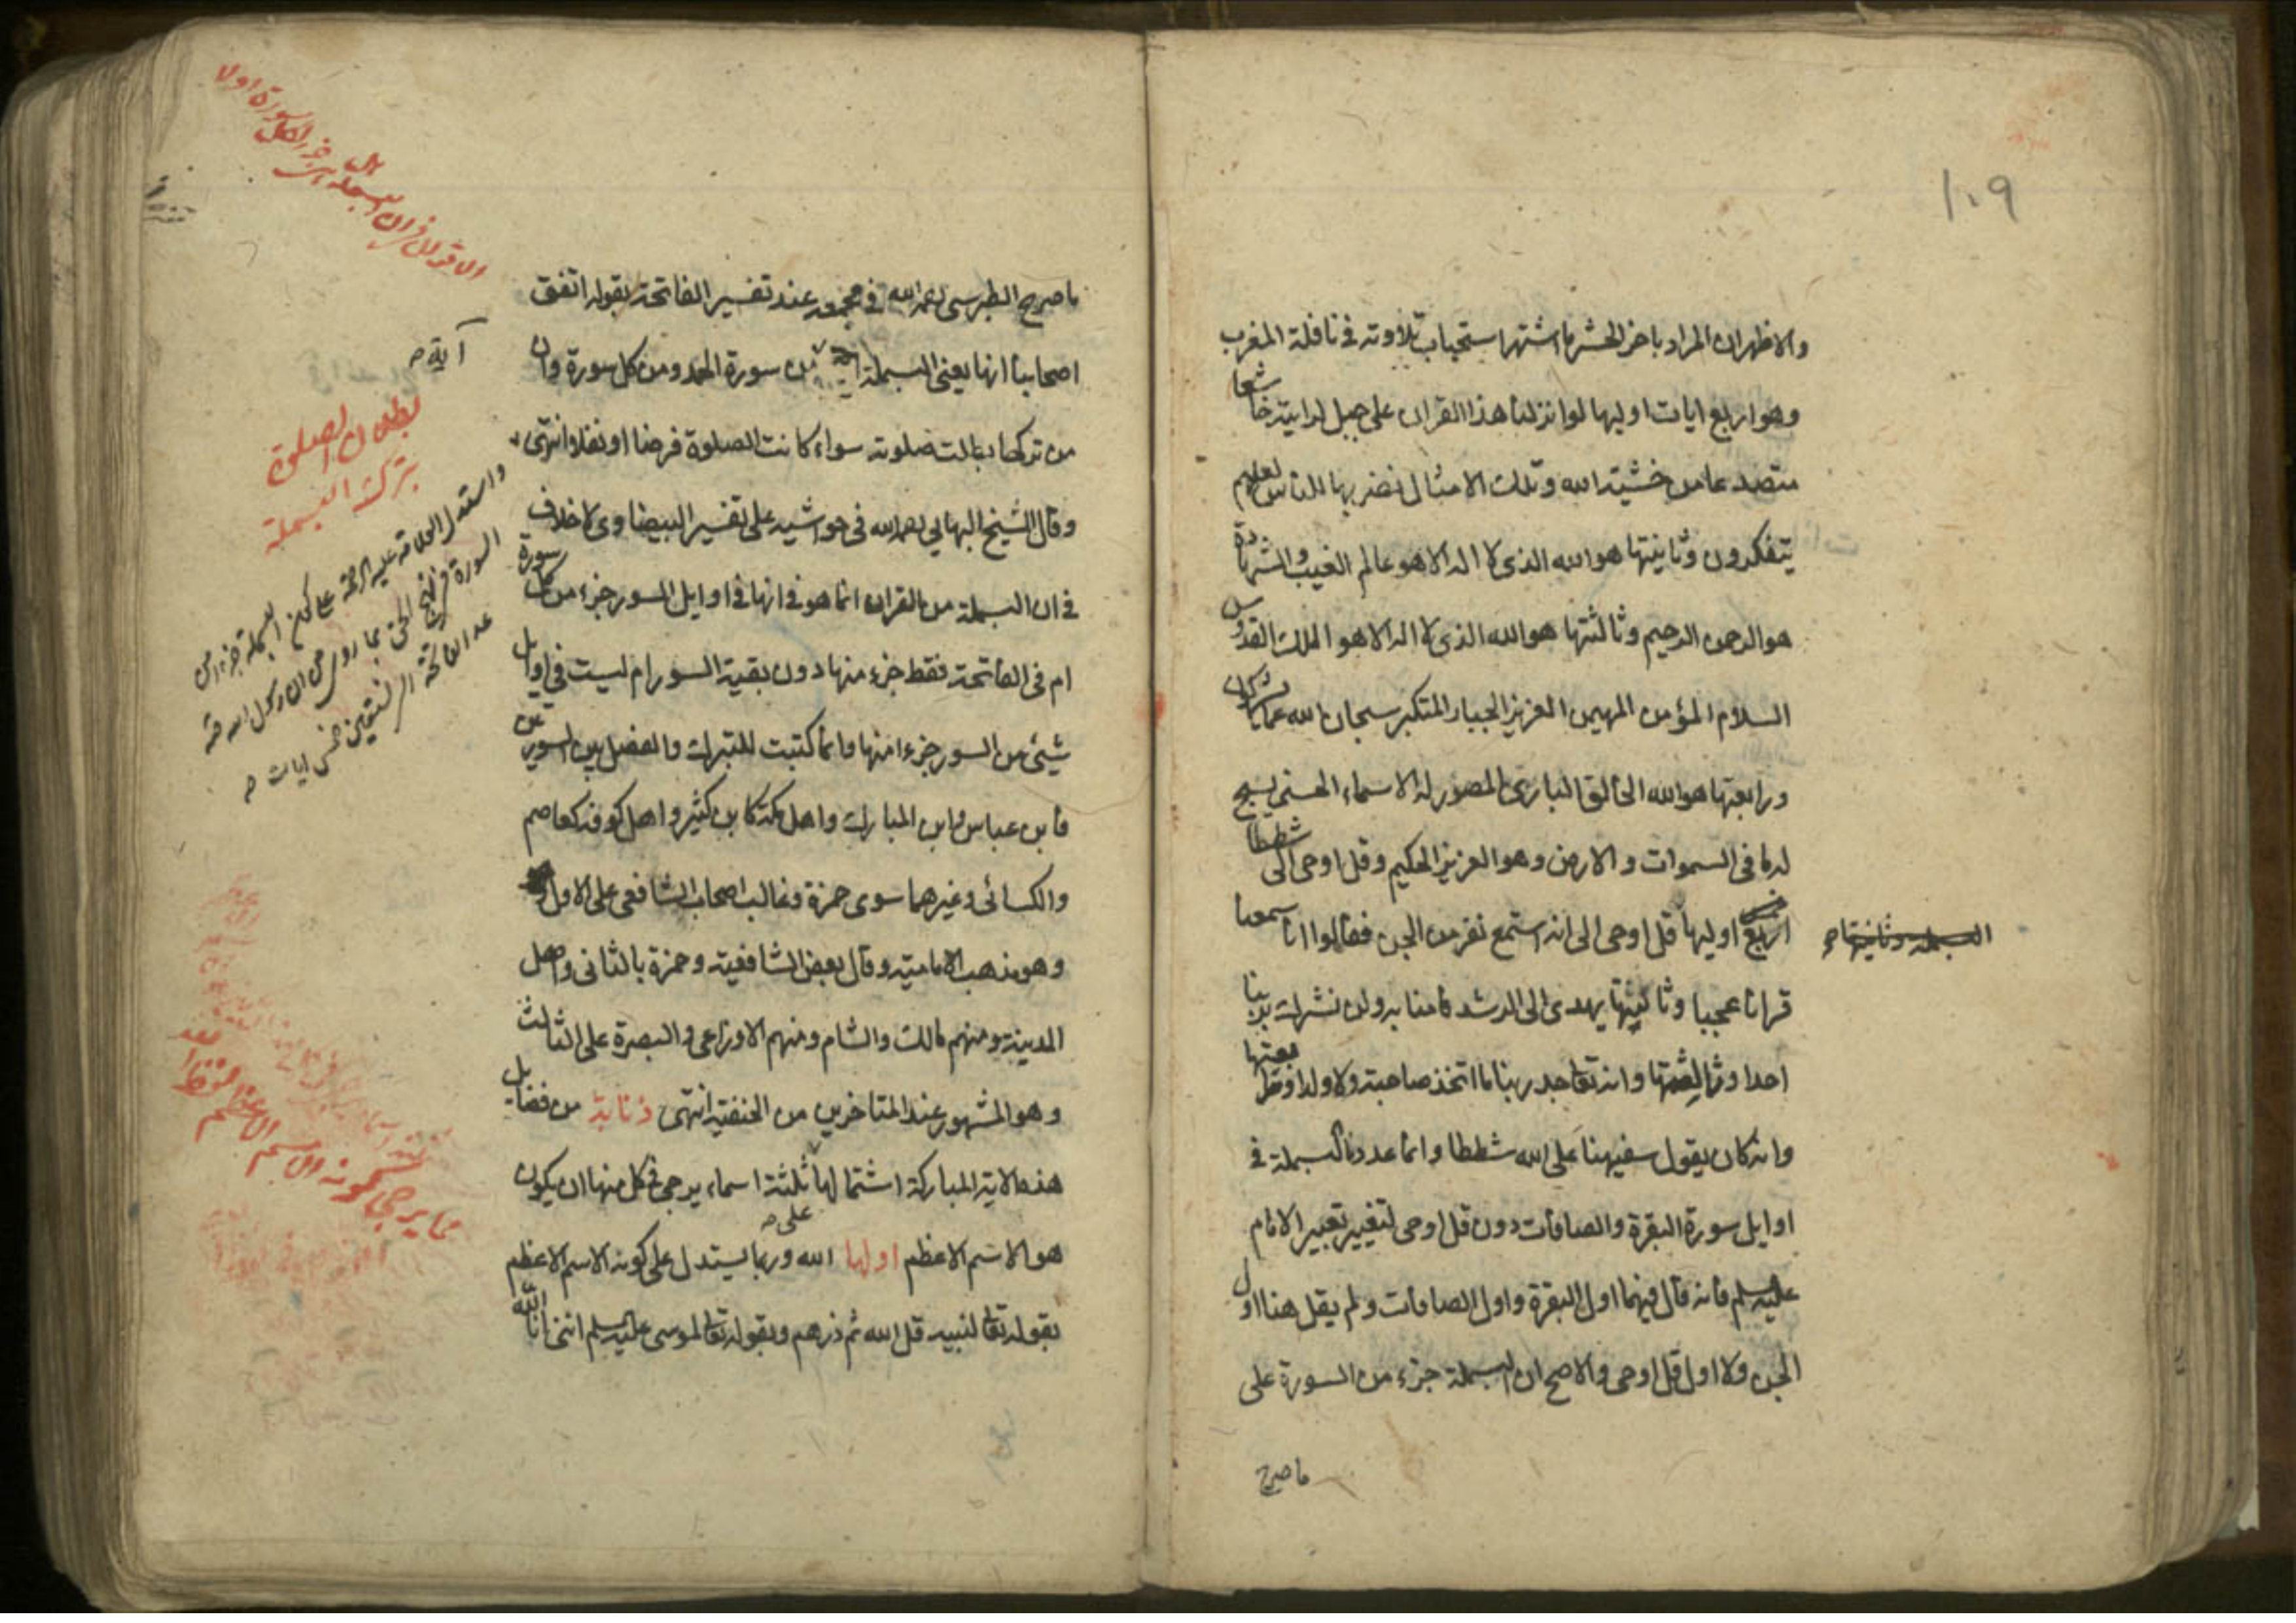 ١٠٩
والاظهر ان المراد باخر الحشر ما اشتهر استحباب تلاوته في نافلة المغرب
وهو اربع ايات اوليها لو انزلنا هذا القران على جبل لرايته خاشعا
متصدعا من خشية الله وتلك الامثال نضربها للناس لعلهم
يتفكرون وثانيتها هو الله الذي لا اله الا هو عالم الغيب والشهادة
هو الرحمن الرحيم وثالثتها هو الله الذي لا اله الا هو الملك القدوس
السلام المؤمن المهيمن العزيز الجبار المتكبر سبحان الله عما يشركون
ورابعتها هو الله الخالق البارئ المصور له الاسماء الحسنى يسبح
له ما في السموات والارض وهو العزيز الحكيم وقل اوحى الى شططا
اربع اوليها قل اوحى الى انه استمع نفر من الجن فقالوا انا سمعنا
البسملة وثانيتها
قرانا عجبا وثانيتها يهدى الى الرشد فامنا به ولن نشرك بربنا
احدا وثالثتها وانه تعا جد ربنا ما اتخذ صاحبة ولا ولدا ورابعتها
وانه كان يقول سفيهنا على الله شططا وانما عددنا البسملة في
اوايل سورة البقرة والصافات دون قل اوحى لتغيير تعبير الامام
عليه سلم فانه قال فيهما اول البقرة واول الصافات ولم يقل هنا اول
الجن ولا اول قل اوحى والاصح ان البسملة جزء من السورة على
ما صرح
ما صرح الطبرسى رحمه الله في مجمعه عند تفسير الفاتحة بقوله اتفق
اصحابنا انها يعنى البسملة اية من سورة الحمد ومن كل سورة وان
من تركها بطلت صلوته سواء كانت الصلوة فرضا او نفلا انتهى
وقال الشيخ البهايي رحمه الله في حواشيه على تفسير البيضاوى لا خلاف
في ان البسملة من القران انما هو في انها في اوايل السور جزء من كل سورة
ام في الفاتحة فقط جزء منها دون بقية السور ام ليست في اوايل
شيئ من السور جزءا منها وانما كتبت للتبرك والفصل بين السورتين
فابن عباس وابن المبارك واهل مكة كابن كثير واهل كوفه كعاصم
والكسائى وغيرهما سوى حمزة وغالب اصحاب الشافعى على الاول
وهو مذهب الامامية وقال بعض الشافعية وحمزة بالثانى واهل
المدينة ومنهم مالك والشام ومنهم الاوزاعى والبصرة على الثالث
وهو المشهور عند المتاخرين من الحنفية انتهى ذنابة من فضايل
هذه الاية المباركة اشتمالها على ثلثة اسماء يرجى في كل منها ان يكون
هو الاسم الاعظم اولها الله وربما يستدل على كونه الاسم الاعظم
بقوله تعا لنبيه قل الله ثم ذرهم وبقوله تعا لموسى عليه سلم اننى انا الله
آية
بطلان الصلوة
بترك البسملة
واستدل العلامة عليه الرحمة على كون البسملة جزء من
عد الفاتحة خمس ايات
مما يرجى كونه الاسم الاعظم